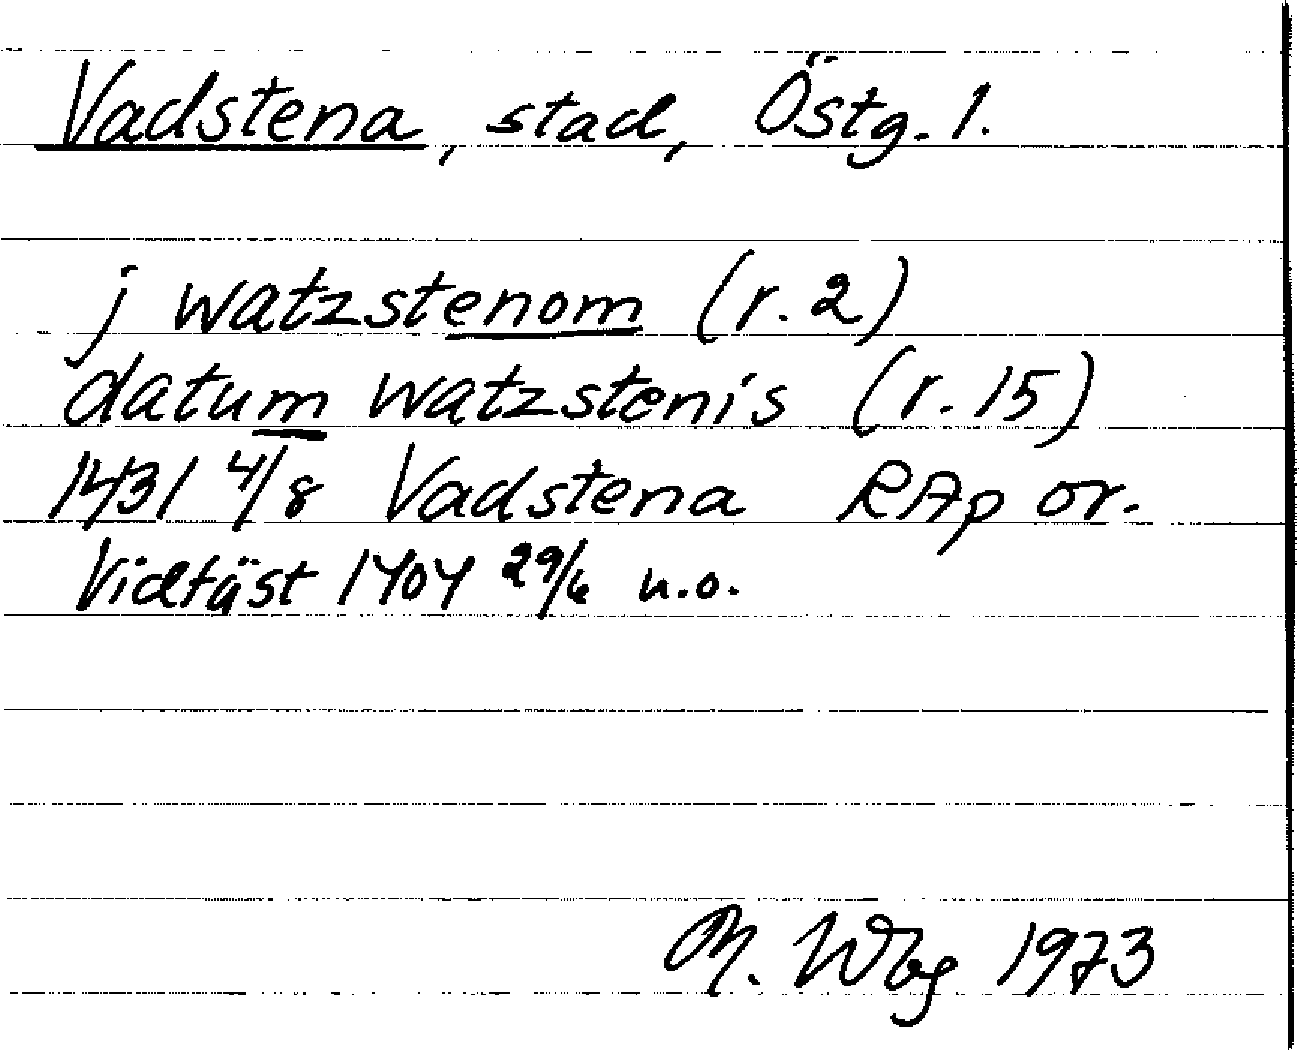 Vadstena, stad, Östg. l.
j watzstenom (r. 2)
datum watzstenis (r. 15)
1431 4/8 Vadstena RAp or.
Vidfäst 1404 29/6 u.o.
M. Wbg 1973